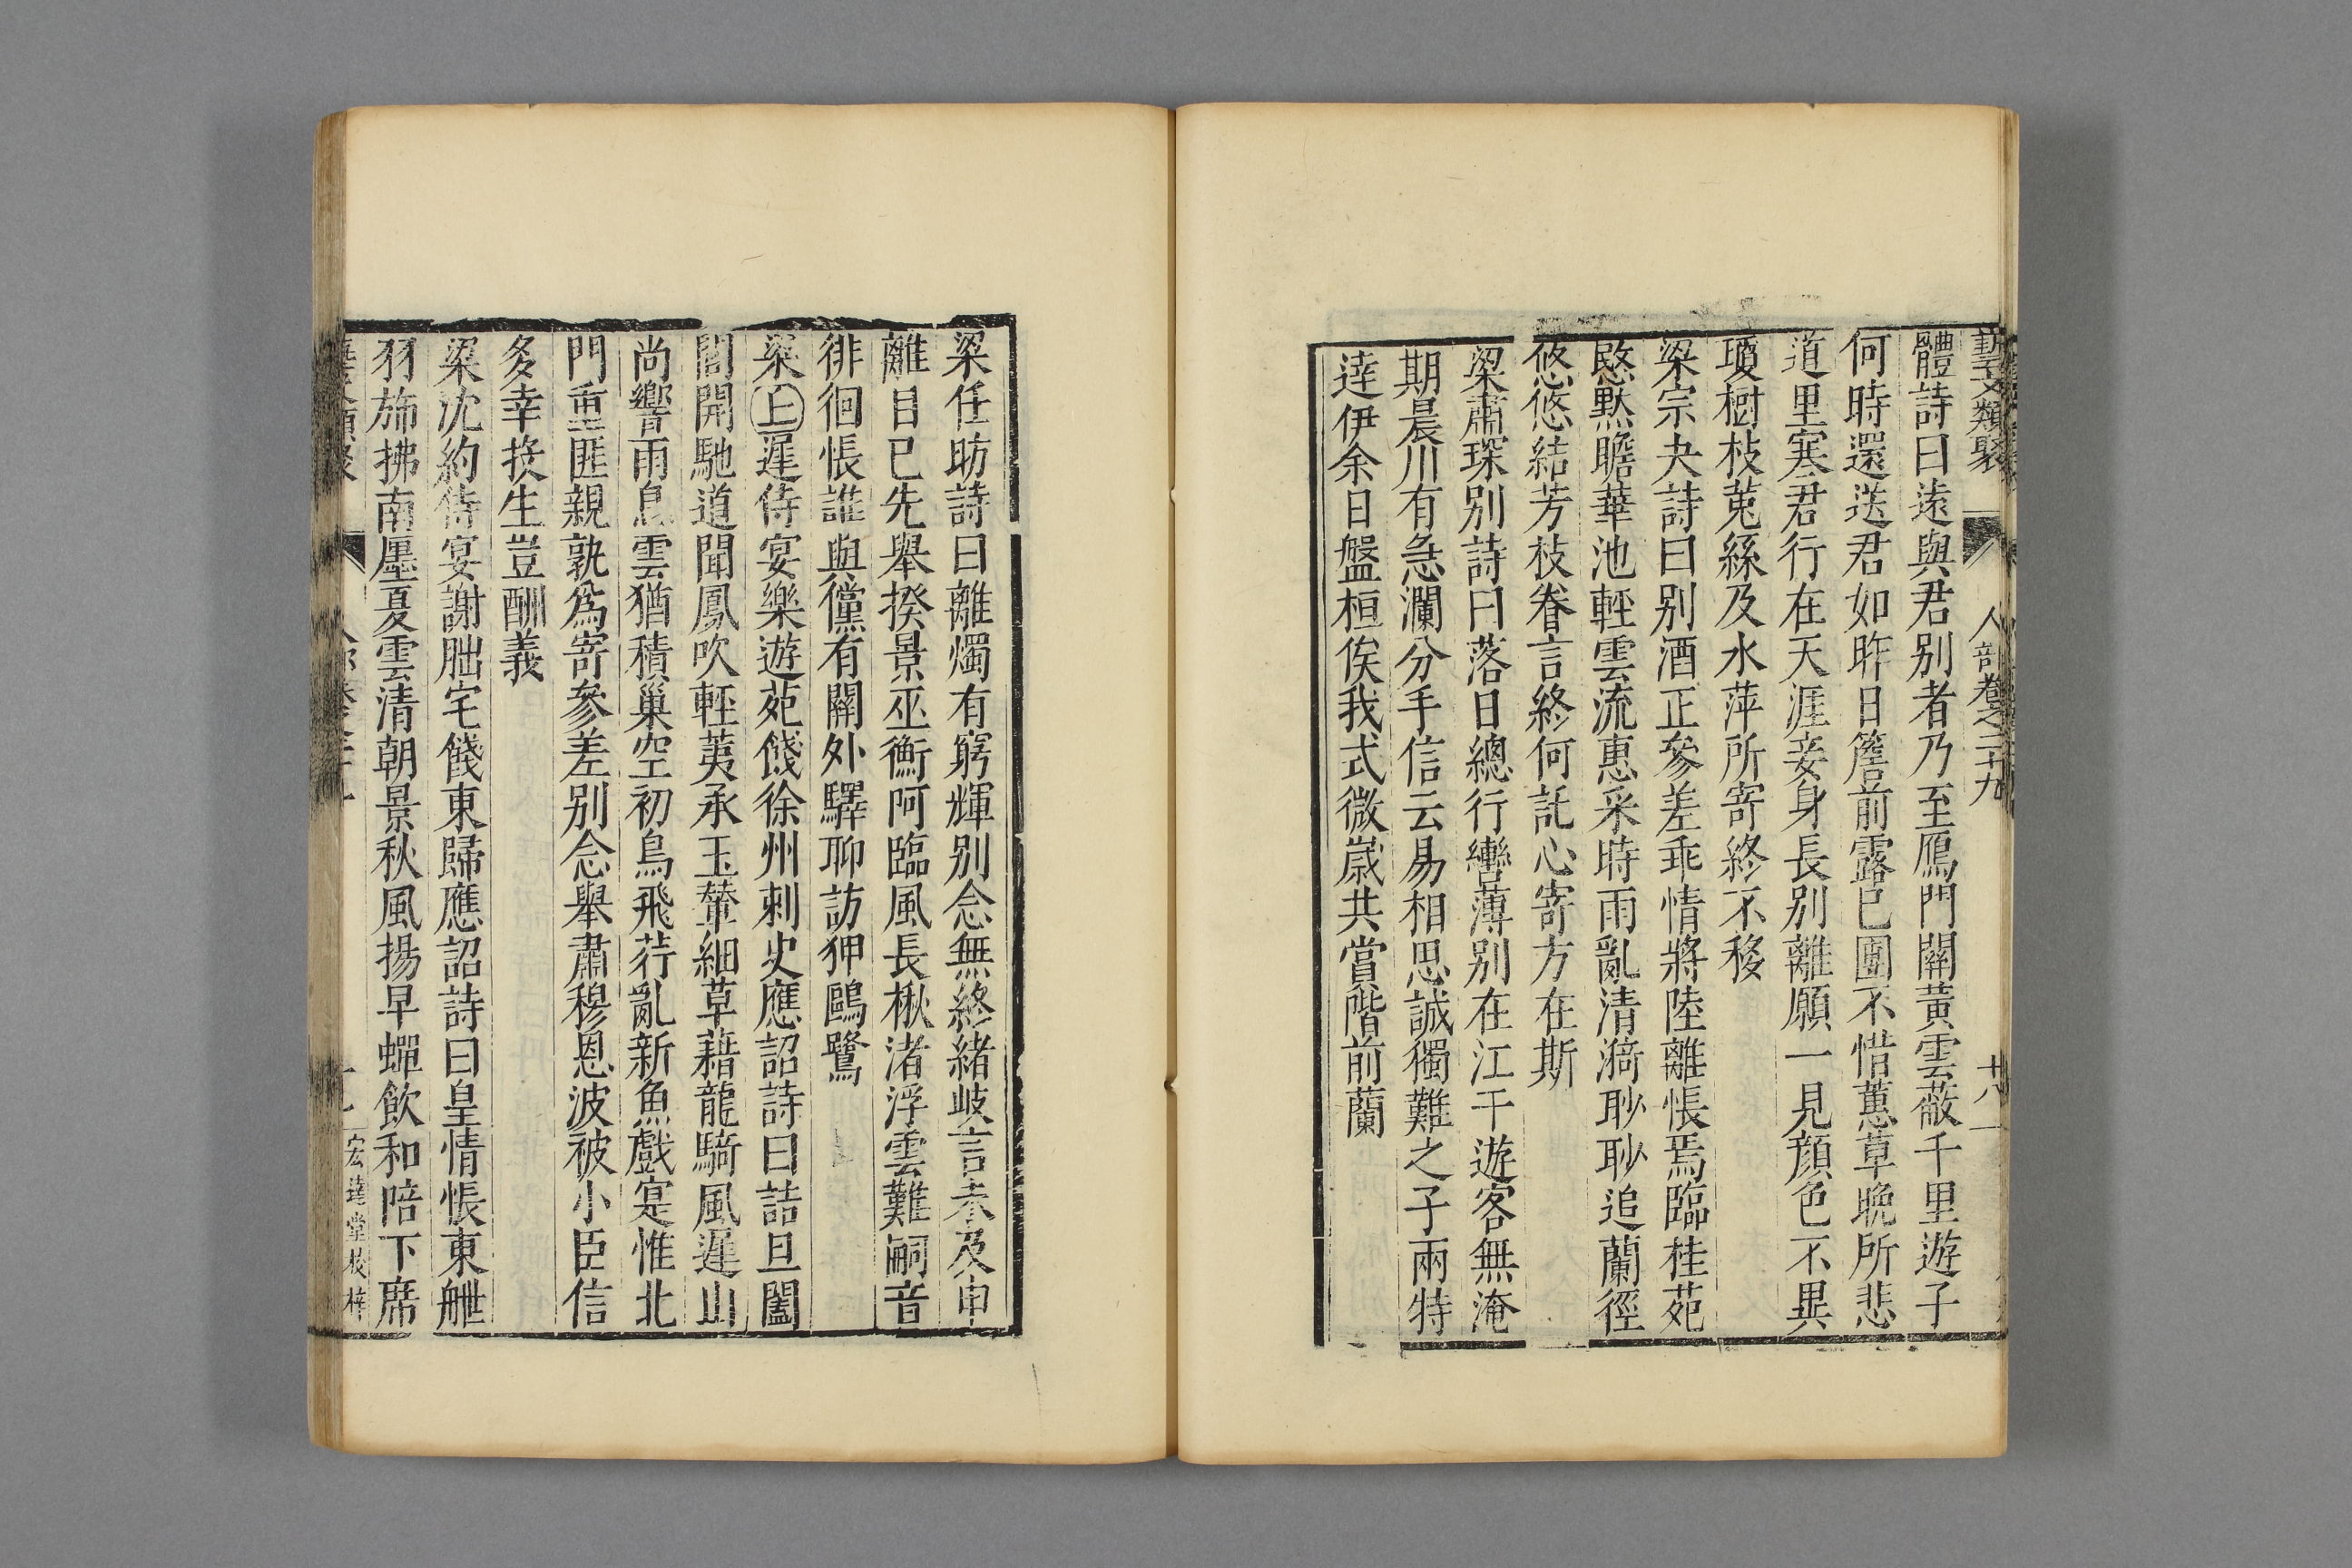 藝文類聚 人部卷之二十九 十八
體詩曰遠與君别者乃至鴈門關黃雲蔽千里遊子
何時還送君如昨日簷前露已團不惜蕙草晩所悲
道里寒君行在天涯妾身長别離願一見顔色不異
瓊樹枝菟絲及水萍所寄終不移
梁宗夬詩曰别酒正參差乖情將陸離悵焉臨桂苑
愍默瞻華池輕雲流惠采時雨亂清漪眇眇追蘭徑
悠悠結芳枝眷言終何託心寄方在斯
梁蕭琛别詩曰落日總行轡薄别在江干遊客無淹
期晨川有急瀾分手信云易相思誠獨難之子兩特
達伊余日盤桓俟我式微嵗共賞階前蘭
梁任昉詩曰離燭有窮輝别念無終緒岐言未及申
離目已先舉揆景巫衡阿臨風長楸渚浮雲難嗣音
徘徊悵誰與儻有關外驛聊訪狎鷗鷺
梁上遲侍宴樂遊苑餞徐州刺史應詔詩曰詰旦闔
閭開馳道聞鳳吹輕荑承玉輦細草藉龍騎風遲山
尚響雨息雲猶積巢空初鳥飛荇亂新魚戲寔惟北
門重匪親孰爲寄參差别念舉肅穆恩波被小臣信
多幸投生豈酬義
梁沈約侍宴謝朏宅餞東歸應詔詩曰皇情悵東䑨
羽斾拂南㕓夏雲清朝景秋風揚早蟬飲和陪下席
宏達堂校梓